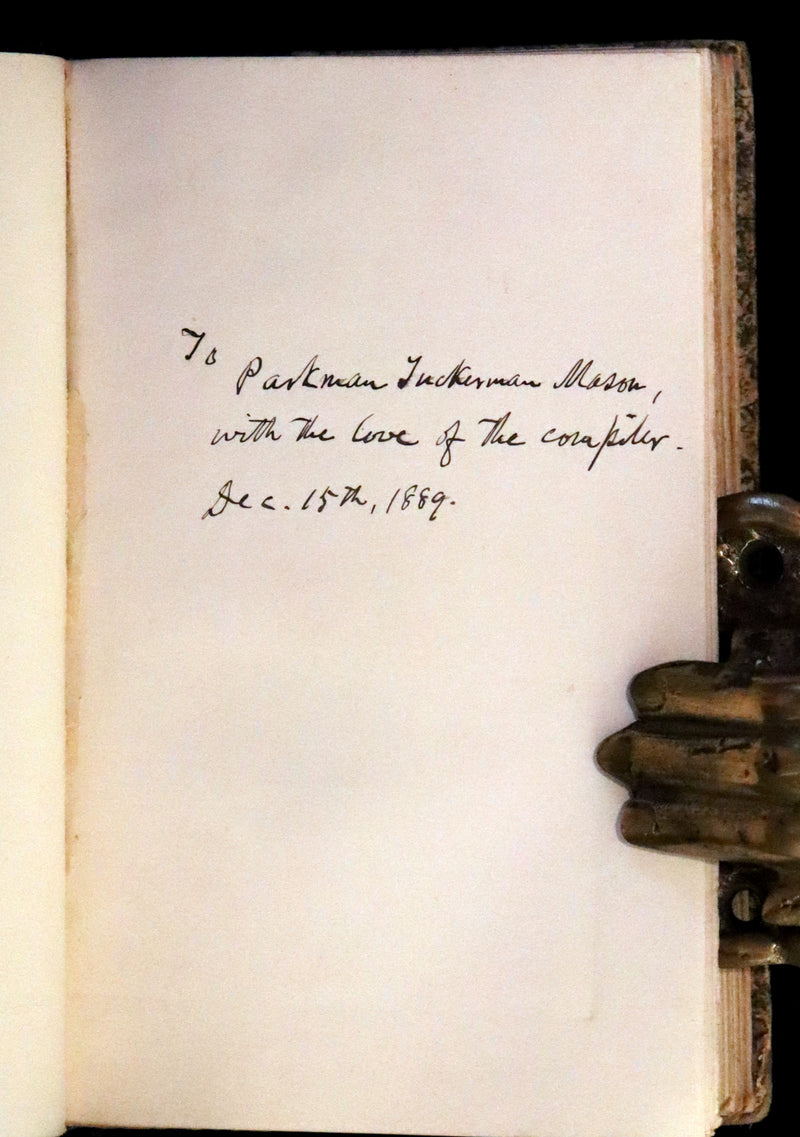 To
Parkman Tuckerman Mason,
with the love of the compiler.
Dec. 15th, 1889.